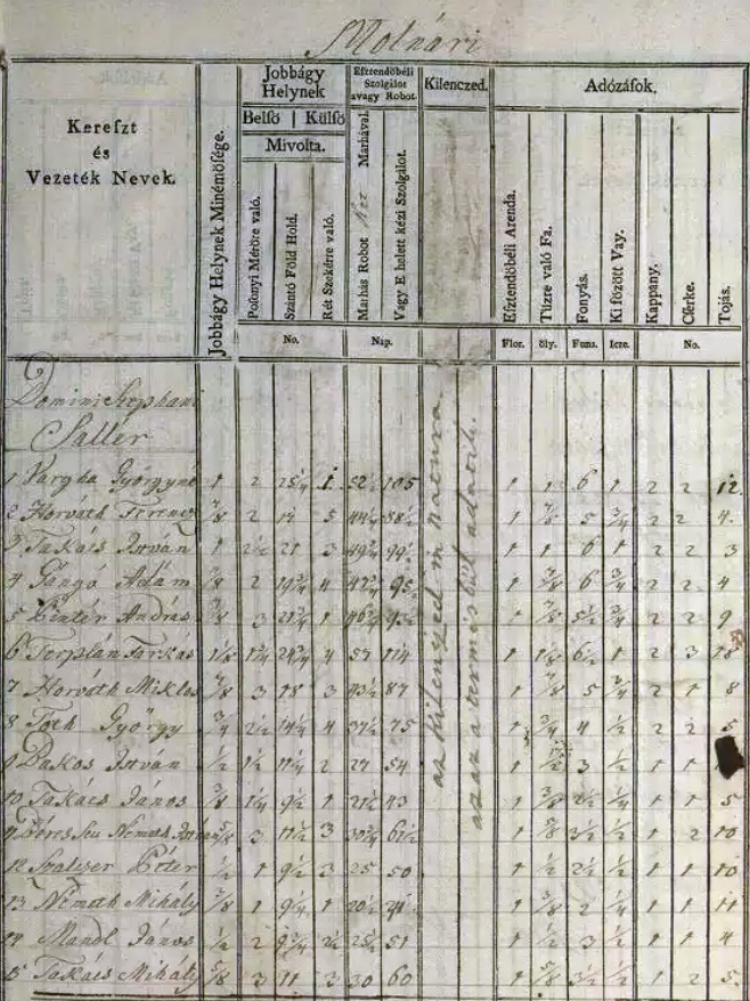 Molnári
Kereſzt és Vezeték Nevek.
Jobbágy Helynek Minémöſége.
Jobbágy Helynek
Belſö | Külſö
Mivolta.
Poſonyi Mérőre való.
Szántó Föld Hold.
Rét Szekérre való.
No.
Eſztendöbéli Szolgálot avagy Robot.
Marhás Robot Marhával.
Vagy E helett kézi Szolgálot.
Nap.
Kilenczed.
Adózáſok.
Eſztendöbéli Arenda.
Flor.
Tüzre való Fa.
öly.
Fonyás.
Funt.
Ki főzött Vay.
Icze.
Kappany.
Cſirke.
Tojás.
No.
Domini Stephani
Sallér
az kilenczed in natura
1 Vargha Györgyné 1 2 25 1/4 1 52 1/2 105 1 1 6 1 2 2 12
2 Horváth Ferencz 7/8 2 5 44 1/4 88 1/2 1 7/8 5 3/4 2 2 4
3 Takács István 1 2 1/2 21 3 99 1/2 1 1 6 1 2 2 3
4 Gángó Adám 7/8 2 19 3/4 4 95 1 7/8 6 3/4 2 2 4
5 Pintér András 7/8 3 21 3/4 1 46 3/4 93 1/2 1 7/8 5 1/2 3/4 2 2 9
6 Terplán Farkas 1 1/8 1 3/4 24 3/4 4 57 114 1 1 1/8 6 1/2 1 2 3
7 Horváth Miklos 7/8 3 18 3 43 1/2 87 1 7/8 5 3/4 2 1 8
8 Tóth György 3/4 2 1/2 14 1/4 4 37 1/2 75 1 3/4 4 1/2 2 2 5
9 Bakos István 1/2 1 1/2 11 1/4 2 27 54 1 1/2 3 1/2 1 1
10 Takács János 3/8 1 1/4 9 1/2 1 21 1/2 43 1 3/8 2 1/2 1/4 1 1 5
11 Németh István 5/8 3 11 1/2 3 30 3/4 61 1/2 1 5/8 3 1/2 1/2 1 2 10
12 Péter 1/2 1 9 1/2 3 25 50 1 1/2 2 1/2 1/2 1 1 10
13 Németh Mihály 3/8 1 9 1/4 1 20 1/2 41 1 3/8 2 1/4 1 1 11
14 Mandl János 1/2 2 9 3/4 2 1/2 25 1/2 51 1 1/2 3 1/2 1 1 4
15 Takács Mihály 5/8 3 11 3 30 60 1 5/8 3 1/2 1/2 1 2 5